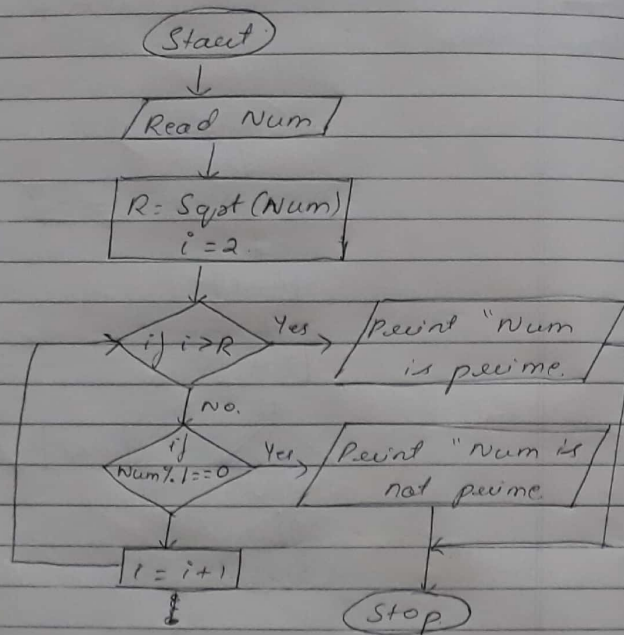 Start
Read Num
R = Sqrt (Num)
i = 2.
if i > R
Yes
Print "Num
is prime.
No.
if
Num % i == 0
Yes
Print "Num is
not prime
i = i + 1
Stop